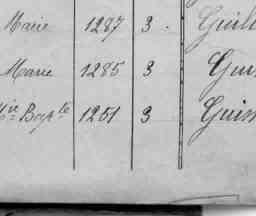 Marie 1287 3 . Guil
Marie 1285 3 Gui
Bapte 1251 3 Guis